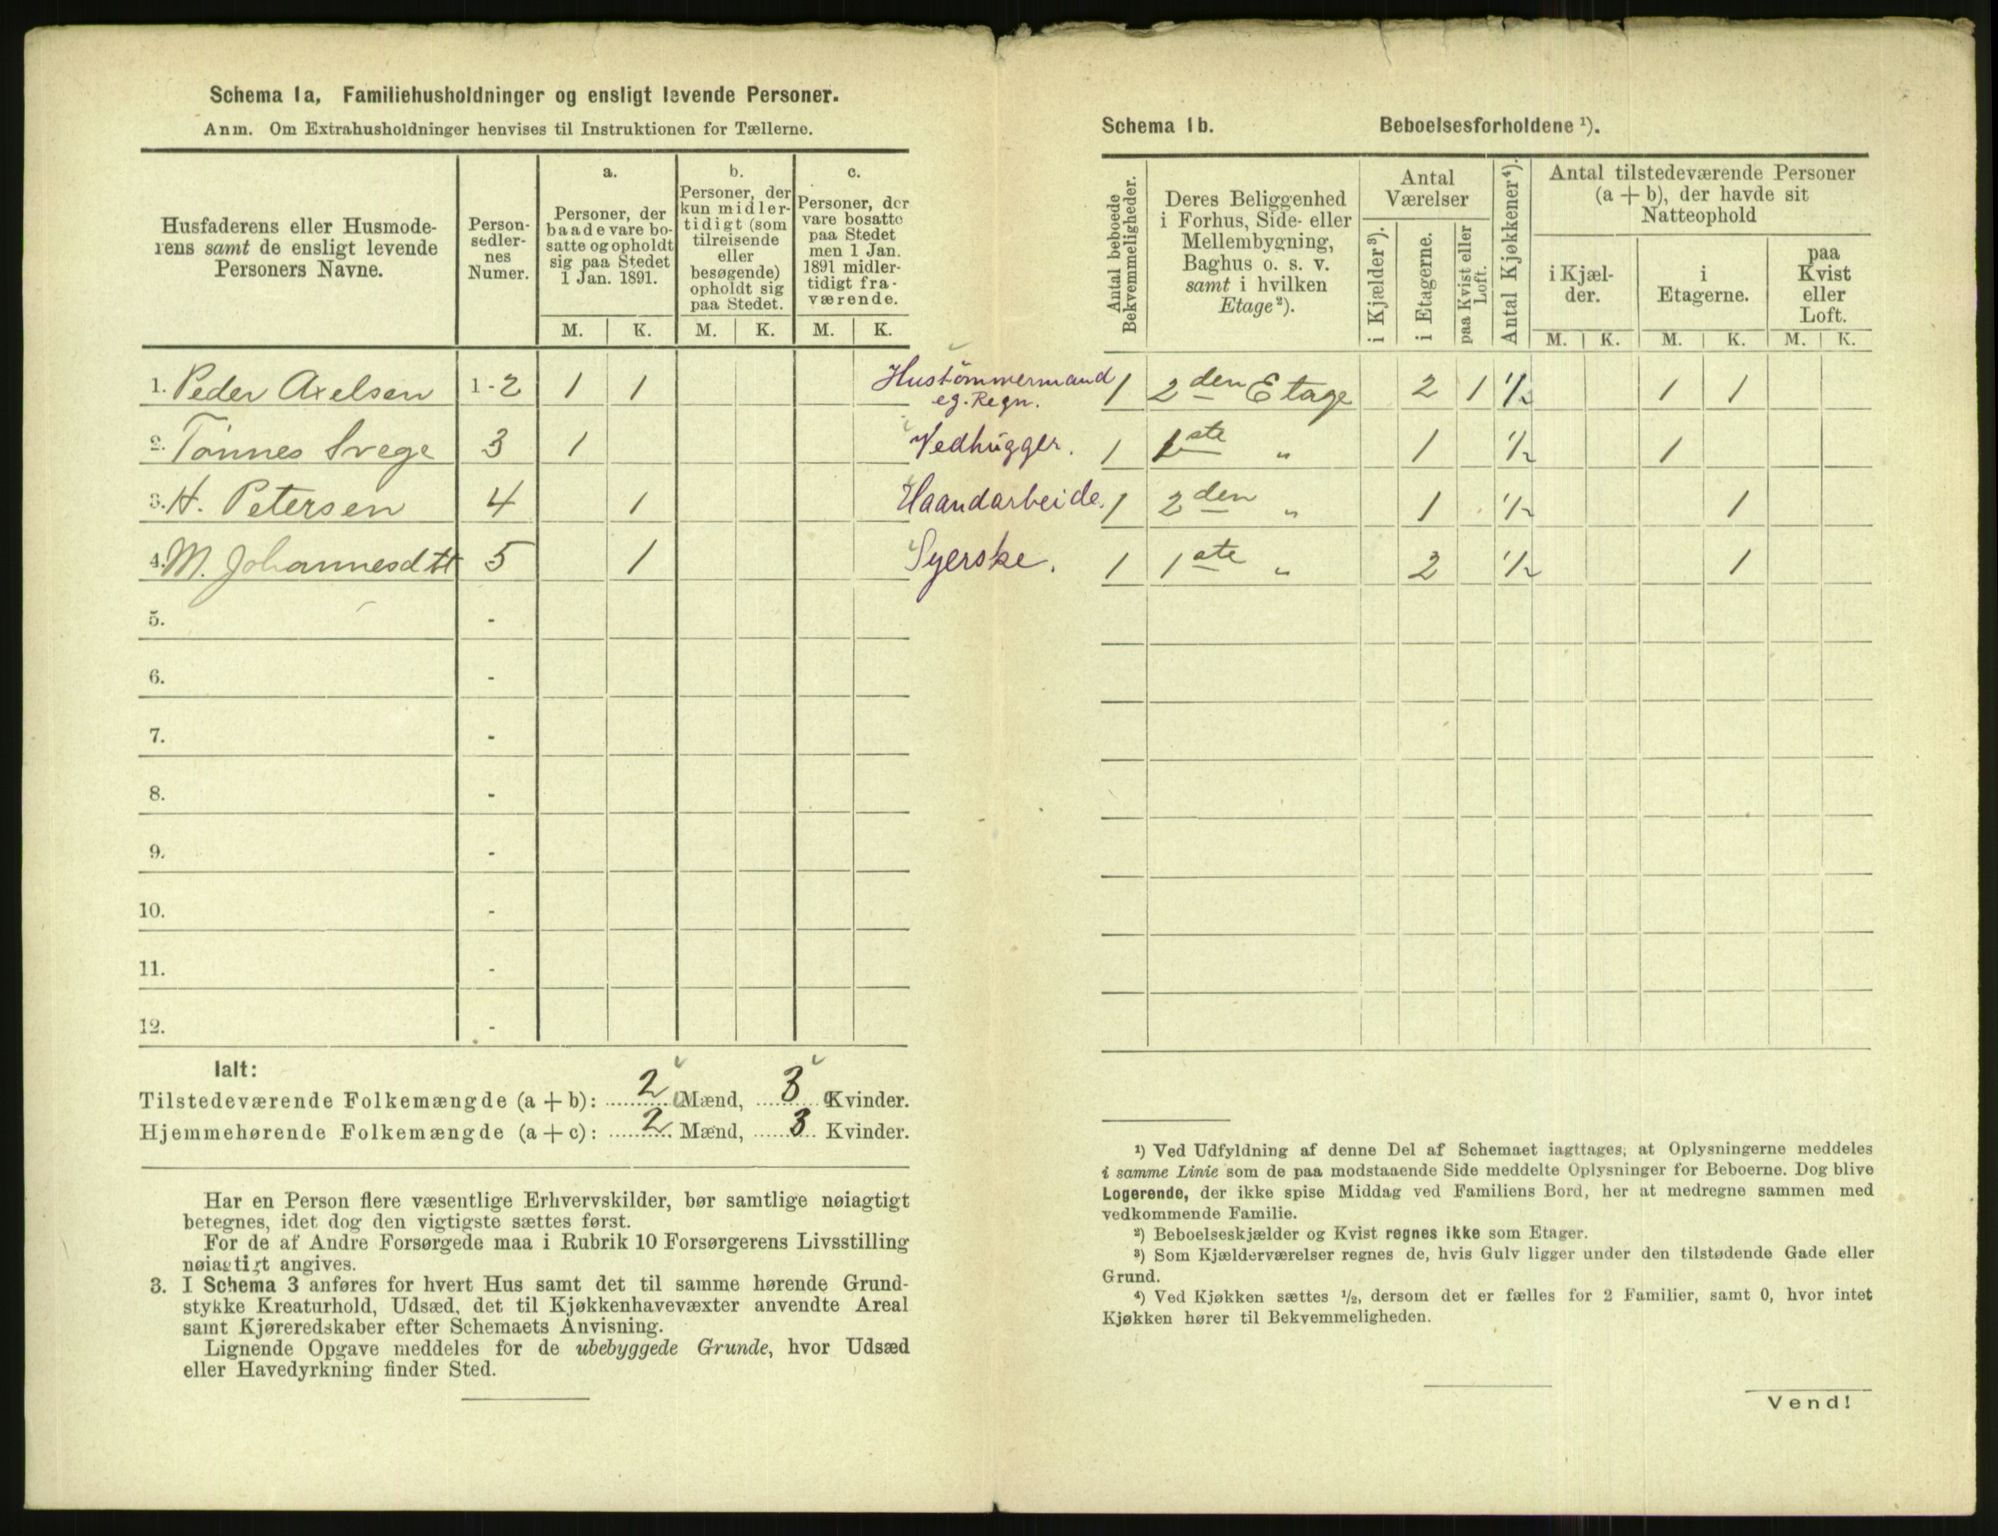 Schema 1a, Familiehusholdninger og ensligt levende Personer.
Anm. Om Extrahusholdninger henvises til Instruktionen for Tællerne.
Husfaderens eller Husmode-
rens samt de ensligt levende
Personers Navne.
Person-
sedler-
nes
Numer.
a.
Personer, der
baade vare bo-
satte og opholdt
sig paa Stedet
1 Jan. 1891.
b.
Personer, der
kun midler-
tidigt (som
tilreisende
eller
besøgende)
opholdt sig
paa Stedet.
c.
Personer, der
vare bosatte
paa Stedet
men 1 Jan.
1891 midler-
tidigt fra-
værende.
M. K. M. K. M. K.
1. Peder Axelsen 1-2 1 1 Hustømmermand
eg. Regn.
2. Tønnes Svege 3 1 Vedhugger.
3. H. Petersen 4 1 Haandarbeide.
4. M. Johannesdtt 5 1 Syerske.
5. -
6. -
7. -
8. -
9. -
10. -
11. -
12. -
Ialt:
Tilstedeværende Folkemængde (a + b): 2 Mænd, 3 Kvinder.
Hjemmehørende Folkemængde (a + c): 2 Mænd, 3 Kvinder.
Har en Person flere væsentlige Erhvervskilder, bør samtlige nøiagtigt
betegnes, idet dog den vigtigste sættes først.
For de af Andre Forsørgede maa i Rubrik 10 Forsørgerens Livsstilling
nøiagtigt angives.
3. I Schema 3 anføres for hvert Hus samt det til samme hørende Grund-
stykke Kreaturhold, Udsæd, det til Kjøkkenhavevæxter anvendte Areal
samt Kjøreredskaber efter Schemaets Anvisning.
Lignende Opgave meddeles for de ubebyggede Grunde, hvor Udsæd
eller Havedyrkning finder Sted.
Schema 1b. Beboelsesforholdene ¹).
Antal beboede
Bekvemmeligheder.
Deres Beliggenhed
i Forhus, Side- eller
Mellembygning,
Baghus o. s. v.
samt i hvilken
Etage²).
Antal
Værelser
i Kjælder³).
i Etagerne.
paa Kvist eller
Loft.
Antal Kjøkkener⁴).
Antal tilstedeværende Personer
(a + b), der havde sit
Natteophold
i Kjæl-
der.
i
Etagerne.
paa
Kvist
eller
Loft.
M. K. M. K. M. K.
1 2den Etage 2 1 1/2 1 1
1 1ste " 1 1/2 1
1 2den " 1 1/2 1
1 1ste " 2 1/2 1
¹) Ved Udfyldning af denne Del af Schemaet iagttages, at Oplysningerne meddeles
i samme Linie som de paa modstaaende Side meddelte Oplysninger for Beboerne. Dog blive
Logerende, der ikke spise Middag ved Familiens Bord, her at medregne sammen med
vedkommende Familie.
²) Beboelseskjælder og Kvist regnes ikke som Etager.
³) Som Kjælderværelser regnes de, hvis Gulv ligger under den tilstødende Gade eller
Grund.
⁴) Ved Kjøkken sættes 1/2, dersom det er fælles for 2 Familier, samt 0, hvor intet
Kjøkken hører til Bekvemmeligheden.
Vend!